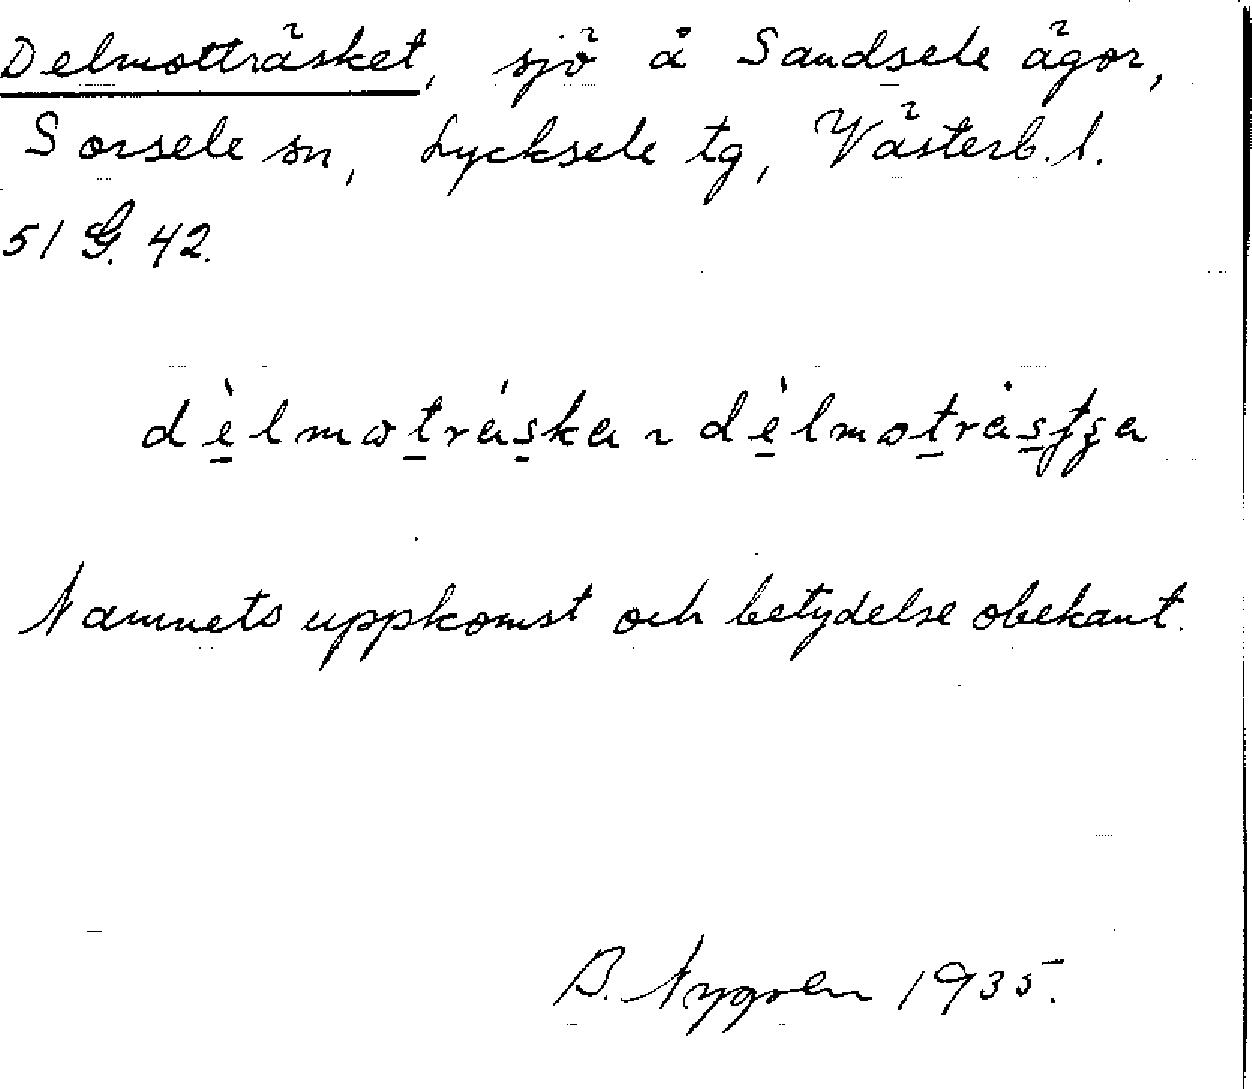 Delmotträsket, sjö å Sandsele ägor,
Sorsele sn, Lycksele tg, Västerb. l.
51 G. 42.
dèlmoträska ~ dèlmoträsʃʒa
Namnets uppkomst och betydelse obekant.
B. Nygren 1935.